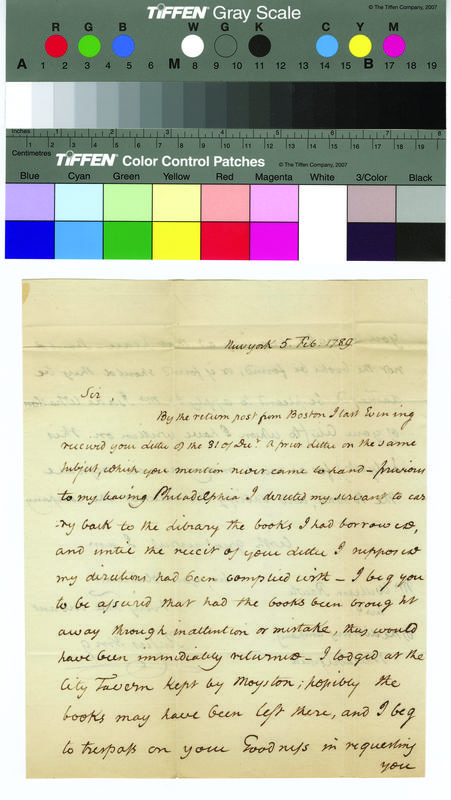 TIFFEN® Gray Scale
© The Tiffen Company, 2007
R G B W G K C Y M
A 1 2 3 4 5 6 M 8 9 10 11 12 13 14 15 B 17 18 19
Inches 1 2 3 4 5 6 7 8
Centimetres 1 2 3 4 5 6 7 8 9 10 11 12 13 14 15 16 17 18 19
TIFFEN® Color Control Patches
© The Tiffen Company, 2007
Blue Cyan Green Yellow Red Magenta White 3/Color Black
New york 5. Feb. 1789
Sir,
By the return post from Boston I last Evening
received your letter of the 31 of Decr A prior letter on the same
subject, which you mention never came to hand – previous
to my leaving Philadelphia I directed my servant to car
-ry back to the library the books I had borrowed,
and until the receit of your letter I supposed
my directions had been complied with – I beg you
to be assured that had the books been brought
away through inattention or mistake, they would
have been immediately returned – I lodged at the
City Tavern kept by Moyston; possibly the
books may have been left there, and I beg
to trespass on your Goodness in requesting
you